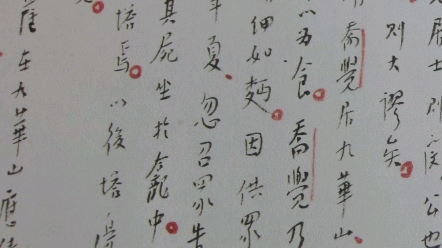 居士則度公也
則大謬矣
喬覺居九華山
以為食喬覺乃
細如麵因供眾
年夏忽召眾告
其屍坐於龕中
塔焉以後塔
在九華山應